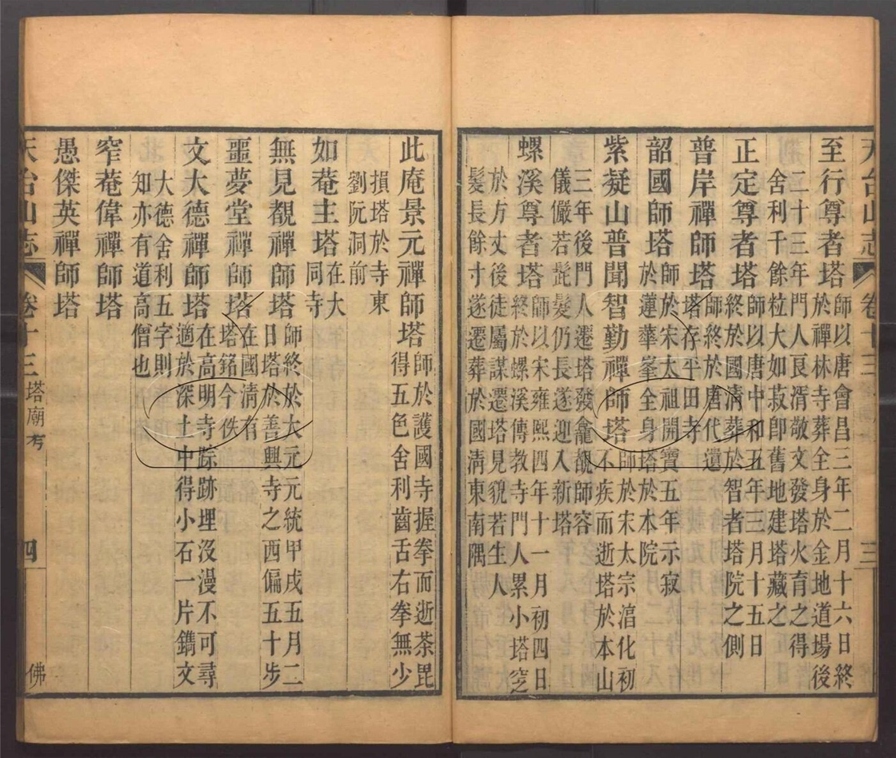 天台山志 卷十三 三
至行尊者塔師以唐會昌三年二月十六日終
於禪林寺葬全身於金地道場後
二十三年門人良湑敬文發塔火育之得
舍利千餘粒大如菽卽舊地建塔藏之
正定尊者塔師以唐中和五年三月十五日
終於國淸葬於智者塔院之側
普岸禪師塔師終於唐代遺
塔存平田寺
韶國師塔師於宋太祖開寶五年示寂
於蓮華峯全身塔於本院
紫凝山普聞智勤禪師塔師於宋太宗淳化初
不疾而逝塔於本山
三年後門人遷塔發龕覩師容
儀儼若髭髮仍長遂迎入新塔
螺溪尊者塔師以宋雍熙四年十一月初四日
終於螺溪傳敎寺門人累小塔窆
於方丈後徒屬謀遷塔見貌若生人
髮長餘寸遂遷葬於國淸東南隅
此庵景元禪師塔師於護國寺握拳而逝茶毘
得五色舍利齒舌右拳無少
損塔於寺東
劉阮洞前
如菴主塔在大
同寺
無見覩禪師塔師終於大元元統甲戌五月二
日塔於善興寺之西偏五十步
噩夢堂禪師塔在國淸有
塔銘今佚
文大德禪師塔在高明寺踪跡埋沒漫不可尋
適於深土中得小石一片鐫文
大德舍利五字則
知亦有道高僧也
窄菴偉禪師塔
愚傑英禪師塔
天台山志 卷十三 塔廟考 四 佛